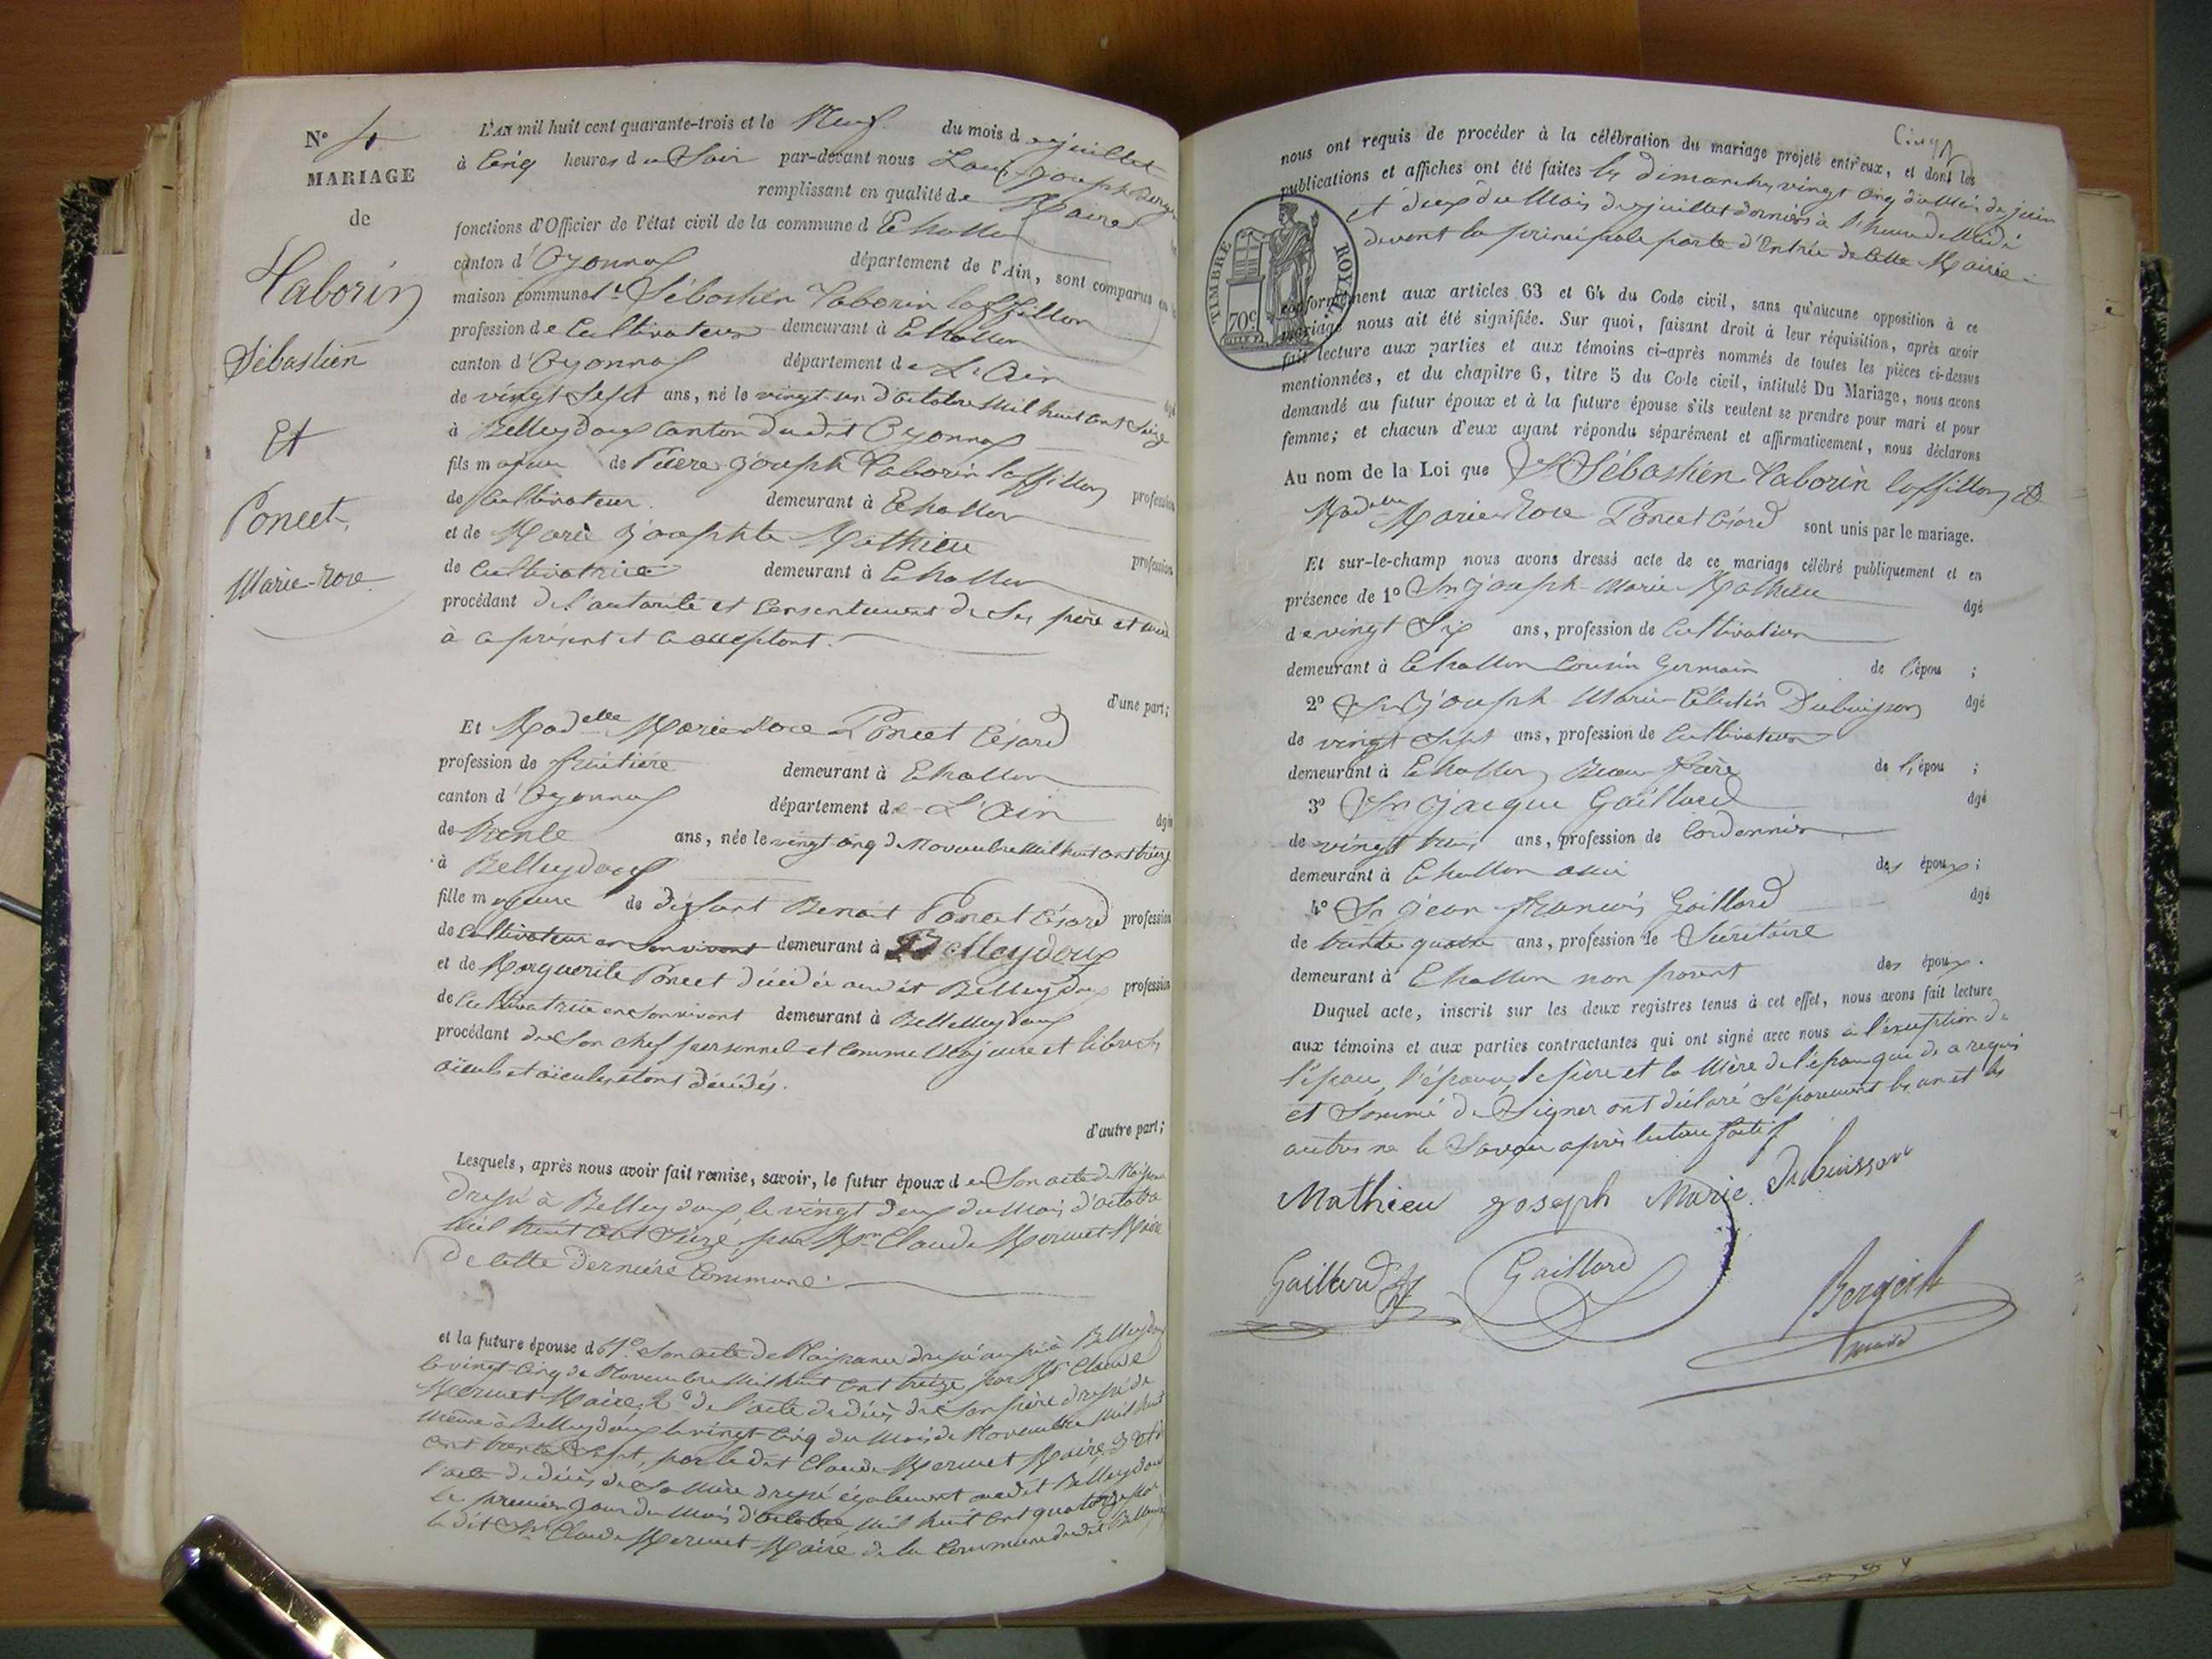 N° 4
MARIAGE
de
Taborin
Sébastien
Et
Poncet,
Marie-Rose
L'AN mil huit cent quarante-trois et le Neuf du mois de juillet
à Cinq heures du Soir par-devant nous Louis Joseph
remplissant en qualité de Maire
fonctions d'Officier de l'état civil de la commune d Echallon
canton d'Oyonnax département de l'Ain, sont comparus en la
maison commune 1° Sébastien Taborin
profession de Cultivateur demeurant à Echallon
canton d'Oyonnax département de L'Ain âgé
de vingt Sept ans, né le vingt un d'octobre Mil huit cent Seize
à Belleydoux Canton dudit Oyonnax
fils majeur de Pierre Joseph Taborin profession
de Cultivateur demeurant à Echallon
et de Marie Josephte Mathieu profession
de Cultivatrice demeurant à Echallon
procédant de l'autorité et Consentement de Ses père et mère
à ce présent et ce acceptant.
d'une part;
Et Madelle Marie Rose Poncet Césard
profession de fruitière demeurant à Echallon
canton d'Oyonnax département de L'Ain âgée
de Trente ans, née le vingt cinq de Novembre Mil huit cent treize
à Belleydoux
fille majeure de défunt Benoit Poncet Césard profession
de Cultivateur en Son vivant demeurant à Belleydoux
et de Marguerite Poncet décédée audit Belleydoux profession
de Cultivatrice en Son vivant demeurant à Belleydoux
procédant de Son chef personnel et Comme Majeure et libre Ses
aïeuls et aïeules étant décédés.
d'autre part;
Lesquels, après nous avoir fait remise, savoir, le futur époux de Son acte de Naissance
dressé à Belleydoux le vingt deux du Mois d'octobre
Mil huit Cent Seize, par Mr Claude Mermet Maire
de cette dernière Commune.
et la future épouse d 1° Son acte de Naissance dressé aussi à Belleydoux
le vingt Cinq de Novembre Mil huit Cent treize par Mr Claude
Mermet Maire, 2° de l'acte de décès de Son père dressé de
même à Belleydoux le vingt Cinq du Mois de Novembre Mil huit
Cent trente Sept, par ledit Claude Mermet Maire, 3° et de
l'acte de décès de Sa Mère dressé également audit Belleydoux
le premier Jour du Mois d'octobre Mil huit Cent quatorze par
le dit Sr Claude Mermet Maire de la Commune dudit Belleydoux
Cinq
nous ont requis de procéder à la célébration du mariage projeté entr'eux, et dont les
publications et affiches ont été faites les dimanches vingt Cinq du Mois de juin
et deux du Mois de juillet derniers à l'heure de Midi
devant la principale porte d'Entrée de cette Mairie
TIMBRE ROYAL
70c
conformément aux articles 63 et 64 du Code civil, sans qu'aucune opposition à ce
mariage nous ait été signifiée. Sur quoi, faisant droit à leur réquisition, après avoir
fait lecture aux parties et aux témoins ci-après nommés de toutes les pièces ci-dessus
mentionnées, et du chapitre 6, titre 5 du Code civil, intitulé Du Mariage, nous avons
demandé au futur époux et à la future épouse s'ils veulent se prendre pour mari et pour
femme; et chacun d'eux ayant répondu séparément et affirmativement, nous déclarons
Au nom de la Loi que Sr Sébastien Taborin et
Madelle Marie Rose Poncet Césard sont unis par le mariage.
Et sur-le-champ nous avons dressé acte de ce mariage célébré publiquement et en
présence de 1° Sr Joseph Marie Mathieu âgé
de vingt Six ans, profession de Cultivateur
demeurant à Echallon Cousin Germain de l'épou ;
2° Sr Joseph Marie Célestin Dubuisson âgé
de vingt Sept ans, profession de Cultivateur
demeurant à Echallon Beau frère de l'épou ;
3° Sr Jacque Gaillard âgé
de vingt trois ans, profession de Cordonnier
demeurant à Echallon ami des époux;
4° Sr Jean François Gaillard âgé
de trente quatre ans, profession de Sécrétaire
demeurant à Echallon non parent des époux.
Duquel acte, inscrit sur les deux registres tenus à cet effet, nous avons fait lecture
aux témoins et aux parties contractantes qui ont signé avec nous à l'exception de
l'époux, l'épouse, le père et la Mère de l'époux qui de ce requis
et Sommé de Signer ont déclaré Séparément les un et les
autres ne le Savoir après lecture faite
Mathieu joseph Marie Dubuisson
Gaillard Gaillard
maire